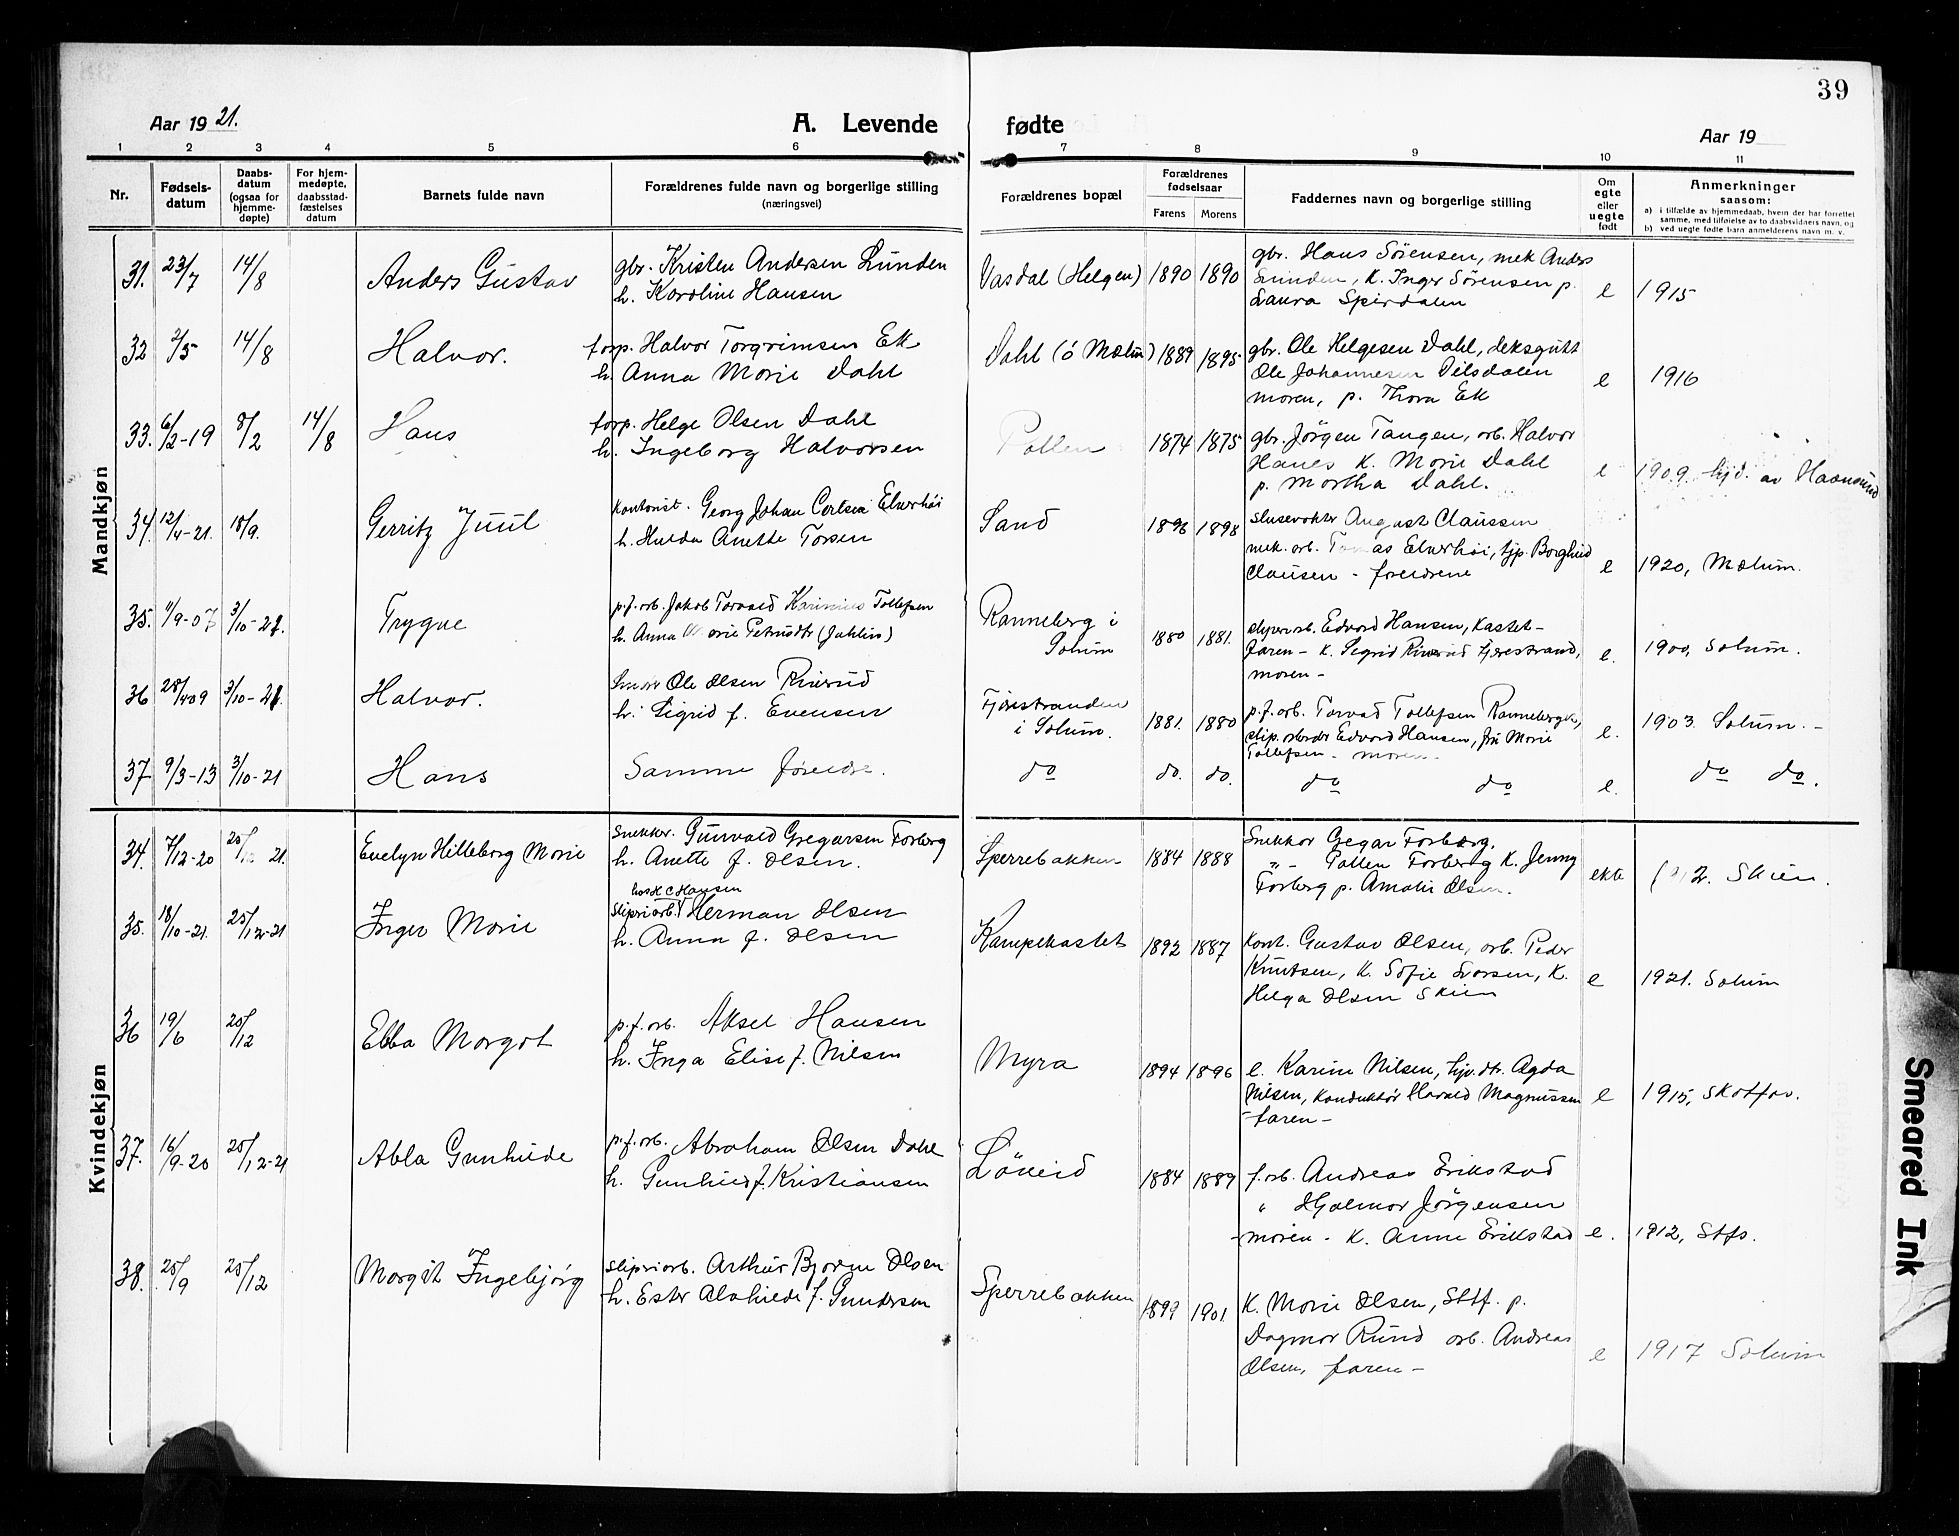 39
Aar 19 21.
A. Levende fødte
Aar 19
1 2 3 4 5 6 7 8 9 10 11
Nr.
Fødsels-
datum
Daabs-
datum
(ogsaa for
hjemme-
døpte)
For hjem-
medøpte,
daabsstad-
fæstelses
datum
Barnets fulde navn
Forældrenes fulde navn og borgerlige stilling
(næringsvei)
Forældrenes bopæl
Forældrenes
fødselsaar
Farens Morens
Faddernes navn og borgerlige stilling
Om
egte
eller
uegte
født
Anmerkninger
saasom:
a) i tilfælde av hjemmedaab, hvem der har forrettet
samme, med tilføielse av to daabsvidners navn, og
b) ved uegte fødte barn anmelderens navn m. v.
Mandkjøn
31. 23/7 14/8 Anders Gustav
gbr. Kristen Andersen Lunden
h. Karoline Hansen
Vasdal (Helgen) 1890 1890
gbr. Hans Sørensen, mek Anders
Lunden, K. Inger Sørensen p.
Laura Spirdalen
e 1915
32 2/5 14/8 Halvor.
forp. Halvor Torgrimsen Ek
h. Anna Marie Dahl
Dahl (ö Mælum) 1889 1895
gbr. Ole Helgesen Dahl,
Ole Johannesen
moren, p. Thora Ek
e 1916
33. 6/2-19 8/2 14/8 Hans
forp. Helge Olsen Dahl
h. Ingeborg Halvorsen
Pollen 1874 1875
gbr. Jörgen Tangen, arb. Halvor
Hanes K. Marie Dahl
p. Martha Dahl.
e 1909. hjd. av
34. 12/4-21. 18/9. Gerritz Juul
Kontorist. Georg Johan Carlsen Elverhöi
h. Hulda Anette Torsen
Sand 1896 1898
Slusevokter August Claussen
mek. arb. Elverhöi, hjp. Borghild
Clausen - foreldrene
e 1920, Mælum.
35. 1/9-07 3/10-21. Trygve
p.f. arb. Jakob Torvald Karinius Tollefsen
h. Anna Marie Petrusdtr (Jahlin)
Ranneberg i
Solum 1880 1881.
arb. Edvard Hansen, Kastet-
faren - K. Sigrid Riverud Fjærestrand,
moren -
e. 1900, Solum.
36 28/4 09 3/10-21. Halvor.
Ole Olsen Riverud
h. Sigrid f. Evensen
Fjærestranden
i Solum. 1881. 1880
p.f. arb. Torvald Tollefsen Ranneberget,
slip. arbeider Edvard Hansen, fru Marie
Tollefsen - moren -
e. 1903. Solum. -
37 9/3-13 3/10-21 Hans
Samme foreldre.
do do. do. do do e. do do.
Kvindekjøn
34. 7/12-20 21. Evelyn Hilleborg Marie
Snekker. Gunvald Gregarsen Forberg
h. Anette f. Olsen.
Sperrebakken 1884 1888
Snekker Gregar Forberg.
" - Pollen Forberg K. Jenny
Forberg p. Amalie Olsen.
ekte Skien.
35. 18/10-21. 25/12-21 Inger Marie
hos H C Hansen
Slipriarb. Herman Olsen
h. Anna f. Olsen
Kampekastet 1892 1887
Kont. Gustav Olsen, arb. Peder
Knutsen, K. Sofie Larsen, K.
Helga Olsen Skien
e 1921. Solum
36 19/6 25/12 Ebba Margot
p.f. arb. Aksel Hansen
h. Inga Elise f. Nilsen
Myra 1894 1896
e. Karine Nilsen, hjv. dtr. Agda
Nilsen, Konduktör Harald Magnussen
- faren -
e 1915, Skotfos.
37. 16/9-20 25/12-21 Abla Gunhilde
p.f. arb. Abraham Olsen Dahl
h. Gunhild f. Kristiansen
Löveid 1884 1889
f. arb. Andreas Erikstad
" Hjalmar Jörgensen
- moren - K. Anne Erikstad
e. 1912, Stfs.
38. 25/9 25/12 Margit Ingebjørg
Slipriarb. Arthur Bjarne Olsen
h. Ester Alvhilde f. Gundersen
Sperrebakken 1899 1901
K. Marie Olsen, Sttf. p.
Dagmar Rund arb. Andreas
Olsen, faren -
e 1917 Solum
Smeared Ink